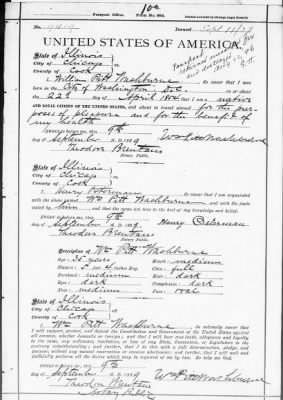 Passport Office. Form No. 862. Printed and sold by Chicago Legal News Co.
Issued Sept 11/89
UNITED STATES OF AMERICA.
State of Illinois
City of Chicago
County of Cook
I, William Pitt Washburne, do swear that I was born in the
City of Washington D.C. on or about
the 22d day of April 1854; that I am a native
AND LOYAL CITIZEN OF THE UNITED STATES, and about to travel abroad for the pur-
poses of pleasure and for the benefit of
my health
SWORN to before me, this 9th
day of September A. D. 1889
Wm Pitt Washburne
Theodor Brentano
Notary Public.
State of Illinois
City of Chicago
County of Cook
I, Henry do swear that I am acquainted
with the above named Wm Pitt Washburne and with the facts
stated by him and that the same are true to the best of my knowledge and belief.
SWORN to before me, this 9th
day of September A. D. 1889
Henry
Theodor Brentano
Notary Public.
Description of Wm Pitt Washburne
Age: 35 years
Mouth: medium
Stature: 5 feet Inches Eng.
Chin: full
Forehead: medium
Hair: dark
Eyes: dark
Complexion: dark
Nose: medium
Face: oval
State of Illinois
City of Chicago
County of Cook
I, Wm Pitt Washburne, do solemnly swear that I
will support, protect, and defend the Constitution and Government of the United States
against all enemies, whether domestic or foreign; and that I will bear true faith, allegiance and loyalty
to the same, any ordinance, resolution, or law of any State, Convention, or Legislature to
the contrary notwithstanding; and further, that I do this with a full determination, pledge, and
purpose, without any mental reservation or evasion whatsoever; and further, that I will well and
faithfully perform all the duties which may be required of me by law. So help me God.
SWORN to before me, this 9th
day of September A. D. 1889
Wm Pitt Washburne
Theodor Brentano
Notary Public